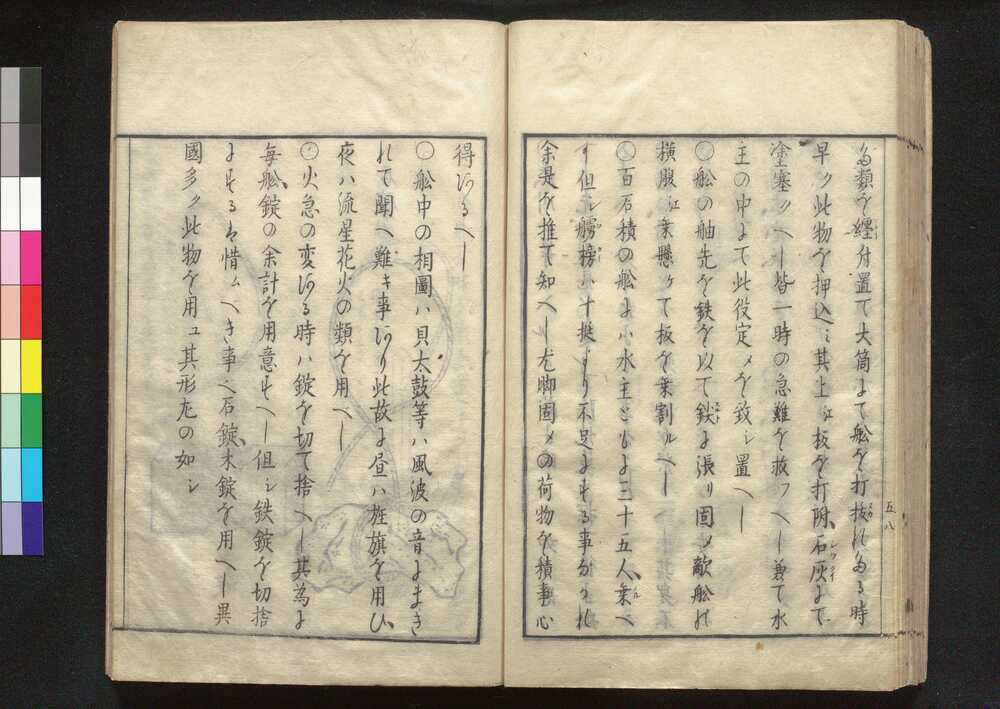 る類を纒ひ付置て大筒にて舩を打抜れたる時
早ク此物を押込ミ其上江板を打附石灰にて
塗塞クヘし皆一時の急難を救フヘし兼て水
主の中にて此役定メを致シ置ヘし
○舩の舳先を鉄を以て鋭に張リ固メ敵舩の
横腹江乗懸ケて板を乗割ルヘし
○百石積の舩にハ水主ともに三十五人乗ヘ
し但シ艪ハ十挺より不足にする事なかれ
余是を推て知ヘし尤脚固メの荷物を積事心
五八
得あるヘし
○舩中の相圖ハ貝太鼓等ハ風波の音にまき
れて聞ヘ難キ事あり此故に昼ハ旌旗を用ひ
夜ハ流星花火の類を用ヘし
○火急の変ある時ハ錠を切て捨ヘし其為に
毎舩錠の余計を用意すヘし但シ鉄錠を切捨
にするは惜ムヘき事也石錠木錠を用ヘし異
國多ク此物を用ユ其形左の如シ